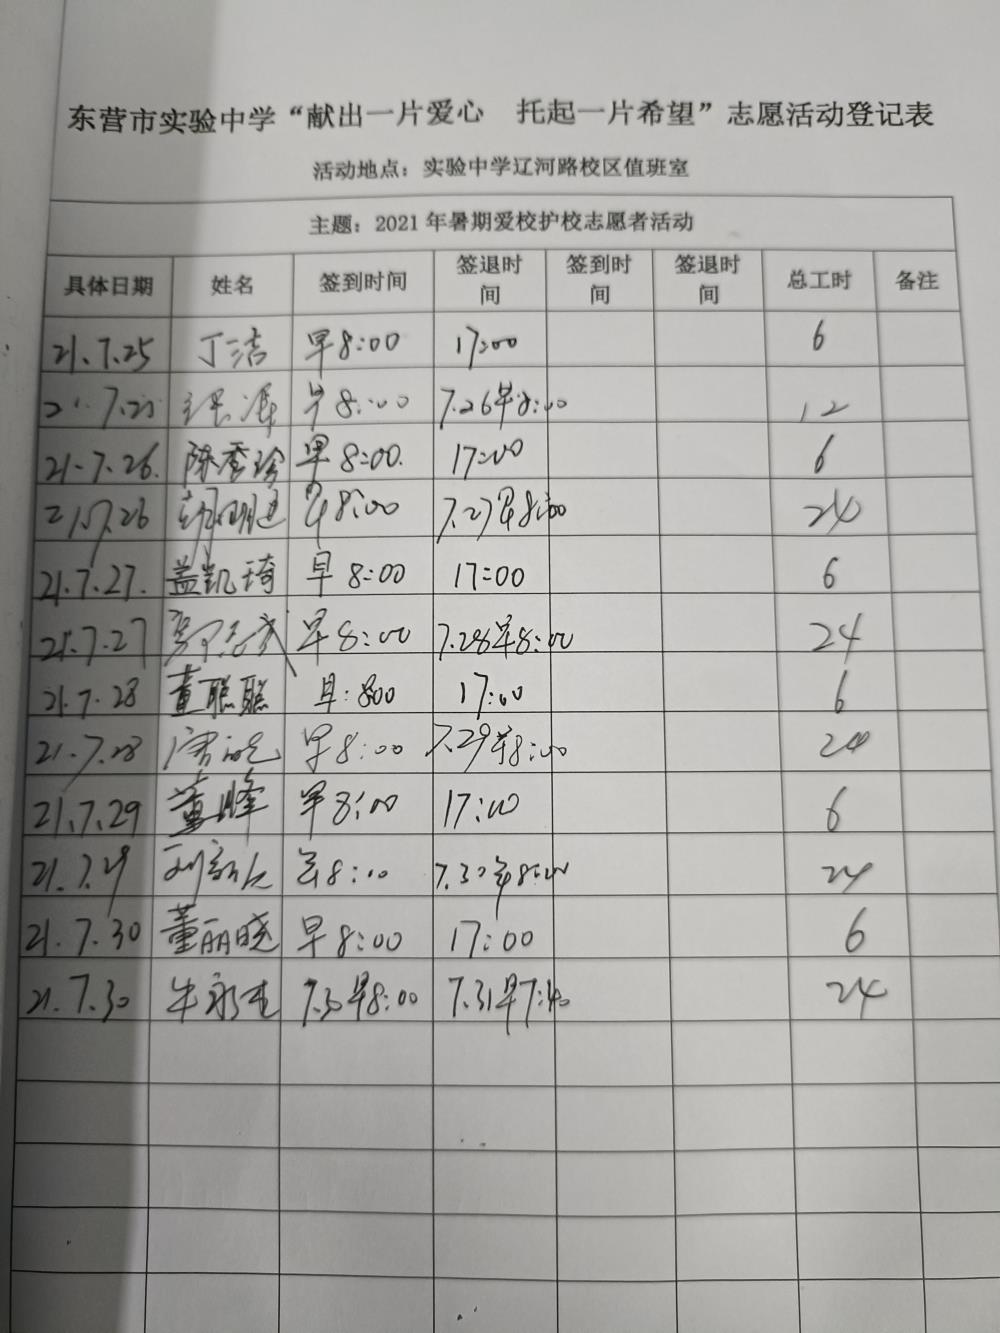 东营市实验中学“献出一片爱心 托起一片希望”志愿活动登记表
活动地点：实验中学辽河路校区值班室
主题：2021年暑期爱校护校志愿者活动
具体日期 姓名 签到时间 签退时间 签到时间 签退时间 总工时 备注
21.7.25 丁洁 早8:00 17:00 6
21.7.25 早8:00 7.26早8:00 12
21.7.26. 陈秀珍 早8:00. 17:00 6
21.7.26 早8:00 7.27早8:00 24
21.7.27. 盖凯琦 早8:00 17:00 6
21.7.27 早8:00 7.28早8:00 24
21.7.28 董聪聪 早:800 17:00 6
21.7.28 早8:00 7.29早8:00 24
21.7.29 董峰 早8:00 17:00 6
21.7.29 早8:00 7.30早8:00 24
21.7.30 董丽晓 早8:00 17:00 6
21.7.30 牛永生 7.30早8:00 7.31早7:40 24